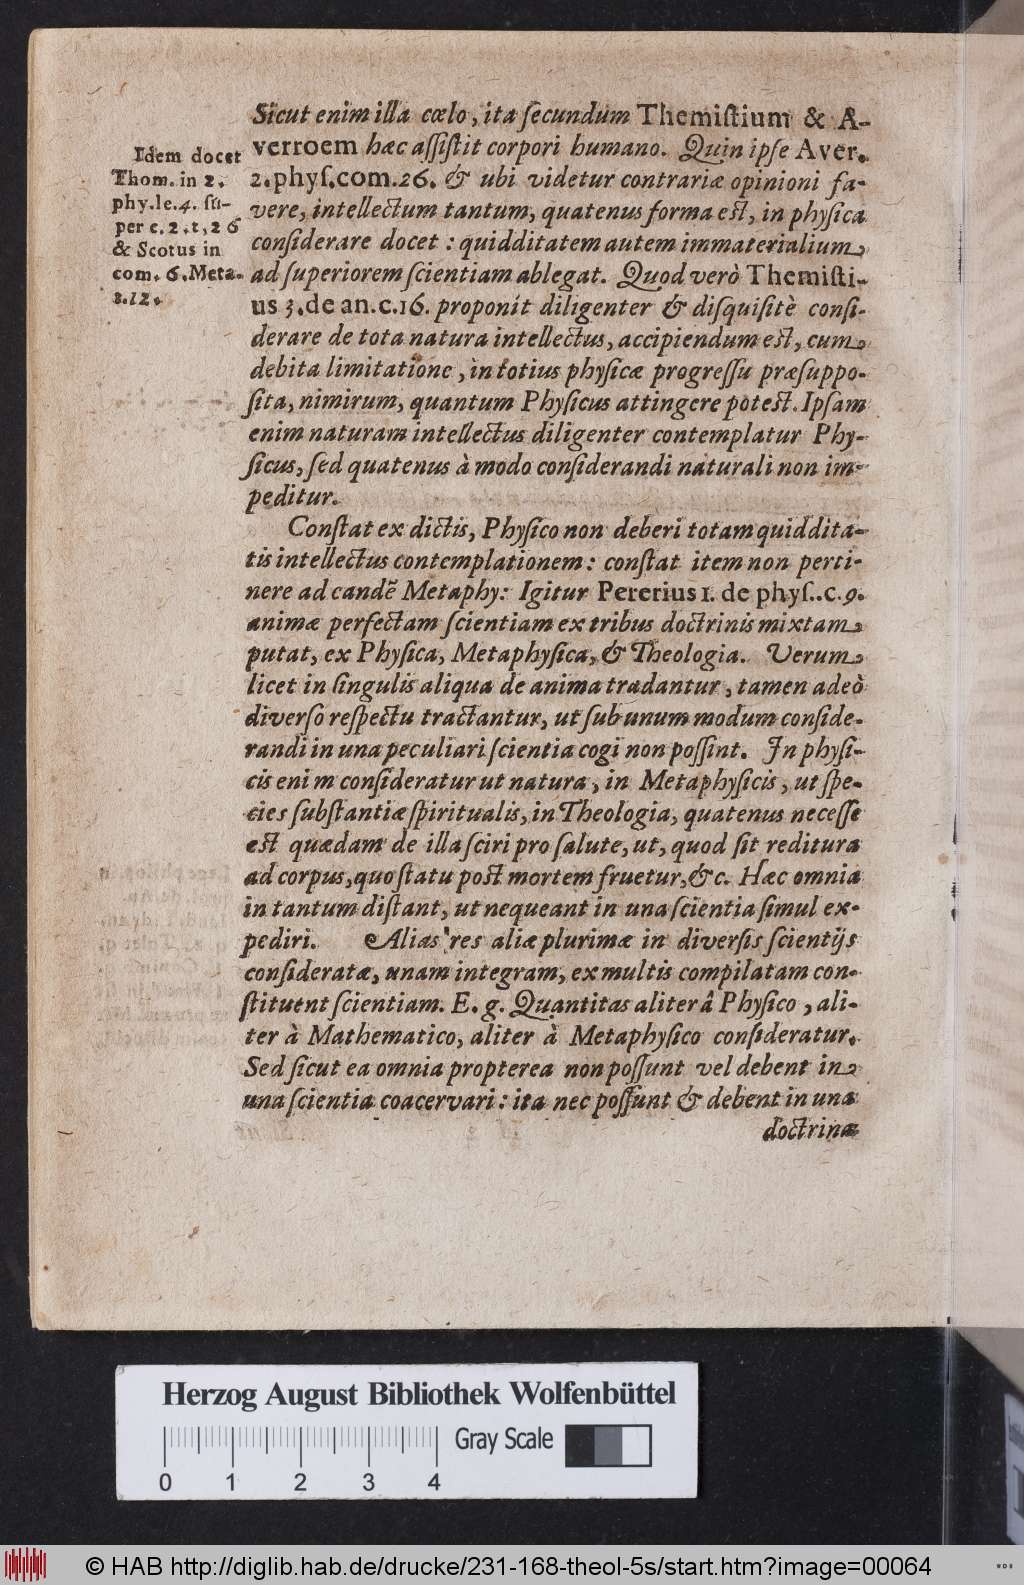 Sicut enim illa cœlo, ita ſecundum Themiſtium & A-
verroem hæc aſſiſtit corpori humano. Quin ipſe Aver.
2.phyſ.com.26. & ubi videtur contrariæ opinioni fa-
vere, intellectum tantum, quatenus forma est, in phyſica
conſiderare docet : quidditatem autem immaterialium
ad ſuperiorem ſcientiam ablegat. Quod verò Themiſti-
us 3.de an.c.16. proponit diligenter & diſquiſitè conſi-
derare de tota natura intellectus, accipiendum est, cum
debita limitatione, in totius phyſicæ progreſſu præſuppo-
ſita, nimirum, quantum Phyſicus attingere potest. Ipſam
enim naturam intellectus diligenter contemplatur Phy-
ſicus, ſed quatenus à modo conſiderandi naturali non im-
peditur.
Idem docet
Thom. in 2.
phy.le.4. ſu-
per c.2.t,26
& Scotus in
com. 6.Meta.
s.12.
Conſtat ex dictis, Phyſico non deberi totam quiddita-
tis intellectus contemplationem: conſtat item non perti-
nere ad candẽ Metaphy: Igitur Pererius 1. de phyſ..c.9.
animæ perfectam ſcientiam ex tribus doctrinis mixtam
putat, ex Phyſica, Metaphyſica, & Theologia. Verum
licet in ſingulis aliqua de anima tradantur, tamen adeò
diverſo reſpectu tractantur, ut ſub unum modum conſide-
randi in una peculiari ſcientia cogi non poſſint. In phyſi-
cis enim conſideratur ut natura, in Metaphyſicis, ut ſpe-
cies ſubſtantiæ ſpiritualis, in Theologia, quatenus neceſſe
est quædam de illa ſciri pro ſalute, ut, quod ſit reditura
ad corpus, quo ſtatu post mortem fruetur, &c. Hæc omnia
in tantum diſtant, ut nequeant in una ſcientia ſimul ex-
pediri. Alias res aliæ plurimæ in diverſis ſcientijs
conſideratæ, unam integram, ex multis compilatam con-
ſtituent ſcientiam. E. g. Quantitas aliter â Phyſico, ali-
ter à Mathematico, aliter à Metaphyſico conſideratur.
Sed ſicut ea omnia propterea non poſſunt vel debent in
una ſcientia coacervari: ita nec poſſunt & debent in una
doctrina
Herzog August Bibliothek Wolfenbüttel
0 1 2 3 4
Gray Scale
© HAB http://diglib.hab.de/drucke/231-168-theol-5s/start.htm?image=00064